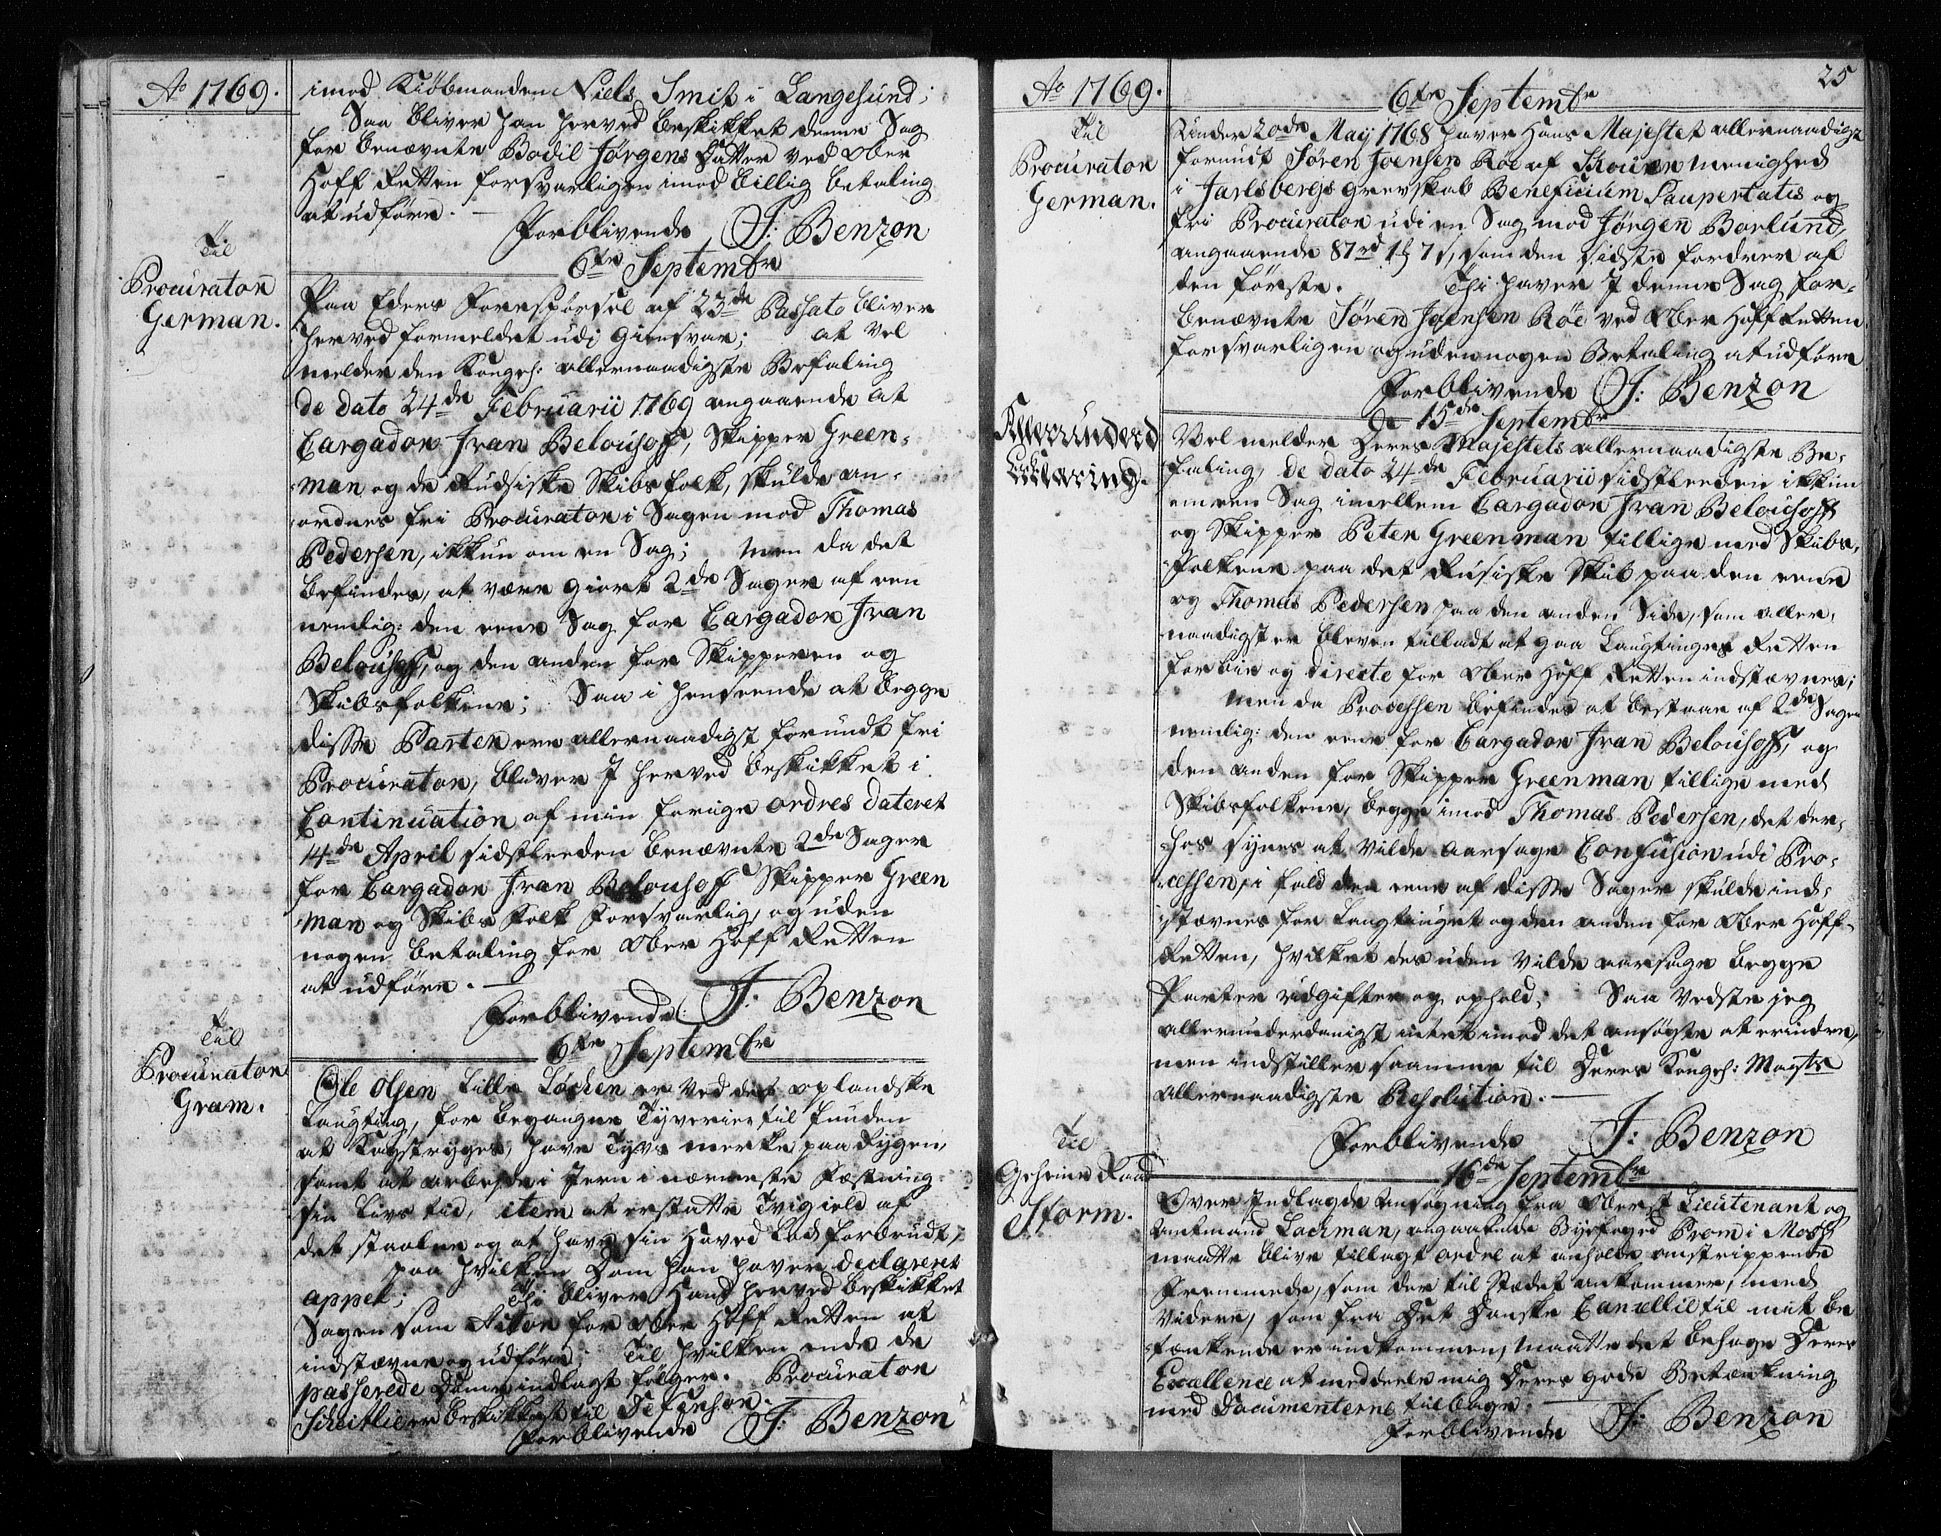 Ao 1769.
imod Kiøbmanden Niels Smit i Langesund;
Saa bliver han herved beskikket denne Sag
for benævnte Bodil Jørgens Datter ved Ober
Hoff Retten forsvarligen imod billig betaling
at udføre.
Forblivende J: Benzon
6te Septembr
Til
Procurator
German.
Paa Eders Forespørsel af 23de Passato bliver
herved formeldet udi Giensvar; at vel
melder den Kongel: allernaadigste Befaling
de dato 24de Februarii 1769 angaaende at
Cargador Ivan Belousoff, Skipper Green-
man og de Rudsiske Skibsfolk, skulde an-
ordnes fri Procurator i Sagen mod Thomas
Pedersen, ikkun om en Sag; men da det
befindes, at være giort 2de Sager af een
nemlig: den eene Sag for Cargador Ivan
Belousoff, og den anden for Skipperen og
Skibsfolkene; Saa i henseende at begge
disse Parter ere allernaadigst forundt fri
Procurator, bliver I herved beskikket i
Continuation af min forige ordres dateret
4de April sidstleeden benævnte 2de Sager
for Cargador Ivan Belousoff Skipper Green
man og Skibs Folk forsvarlig, og uden
nogen betaling for Ober Hoff Retten
at udføre.
Forblivende J: Benzon
6te Septembr
Til
Procurator
Gram.
Ole Olsen Lille Løchen er ved det oplandske
Laugting, for begangne Tyverier tilfunden
at Kagstryges, have Tyvs merke paa Rygen,
samt at arbeyde i Jern i nærmeste Fæstning
sin Livs tid, item at erstatte Tvigield af
det staalne og at have sin Hoved Lod forbrudt,
paa hvilken Dom han haver declareret
appel; Thi bliver Hand herved beskikket
Sagen som Actor for Ober Hoff Retten at
indstævne og udføre; Til hvilken ende de
passerede Domme indlagt følger. Procurator
Scheitlie er beskikket til Defensor.
Forblivende J: Benzon
25
Ao 1769.
6te Septembr
Til
Procurator
German.
Under 20de May 1768 haver Hans Majestet allernaadigst
forundt Søren Joensen Röe af menighed
i Jarlsbergs Grevskab Beneficium Paupertatis og
fri Procurator udi en Sag mod Jørgen Borlund,
angaaende 87rd 1 7s, som den sidste fordrer af
den første. Thi haver I denne Sag for-
benævnte Søren Joensen Röe ved Ober Hoff Retten
forsvarligen og uden nogen Betaling at udføre
Forblivende J: Benzon
d 15de Septembr
Allerunderd
Erklæring.
Vel melder Deres Majestets allernaadigste Be-
faling, de dato 24de Februarii sidstleeden ikkun
om een Sag imellem Cargador Ivan Belousoff
og Skipper Peter Greenman tillige med Skibs-
Folkene paa det Rusiske Skib paa den eene
og Thomas Pedersen paa den anden Side, som aller-
naadigst er bleven tilladt at gaa Laugtinget Retten
forbie og directe for Ober Hoff Retten indstævnes;
Men da Processen befindes at bestaae af 2de Sager
nemlig: den eene for Cargador Ivan Belousoff, og
den anden for Skipper Greenman tillige med
Skibsfolkene, begge imod Thomas Pedersen, det der-
hos synes at vilde aarsage Confusion udi Pro-
cessen, i fald den eene af disse Sager skulde ind-
stævnes for Laugtinget og den anden for Ober Hoff-
Retten, hvilket des uden vilde aarsage begge
Parter udgifter og ophold; Saa vedste jeg
allerunderdanigst intet imod det ansøgte at erindre,
men indstiller saamme til Deres Kongel: Mayts
allernaadigste Resolution.
Forblivende J: Benzon
16de Septembr
Til
Geheime Raad
Storm.
Over Indlagde Ansøgning fra Oberst Lieutenant og
Amtmand Lachman, angaaende Byefoged Prom i Moss
maatte blive tillagt ordre at anholde omstrippende
Fremmede, som der til Stædet ankommer, med
videre, som fra Det Danske Cancellie til mit be
tænkende er indkommen, maatte det behage Deres
Excellence at meddeele mig Deres gode Betænkning
med Documenterne tilbage.
Forblivende J: Benzon